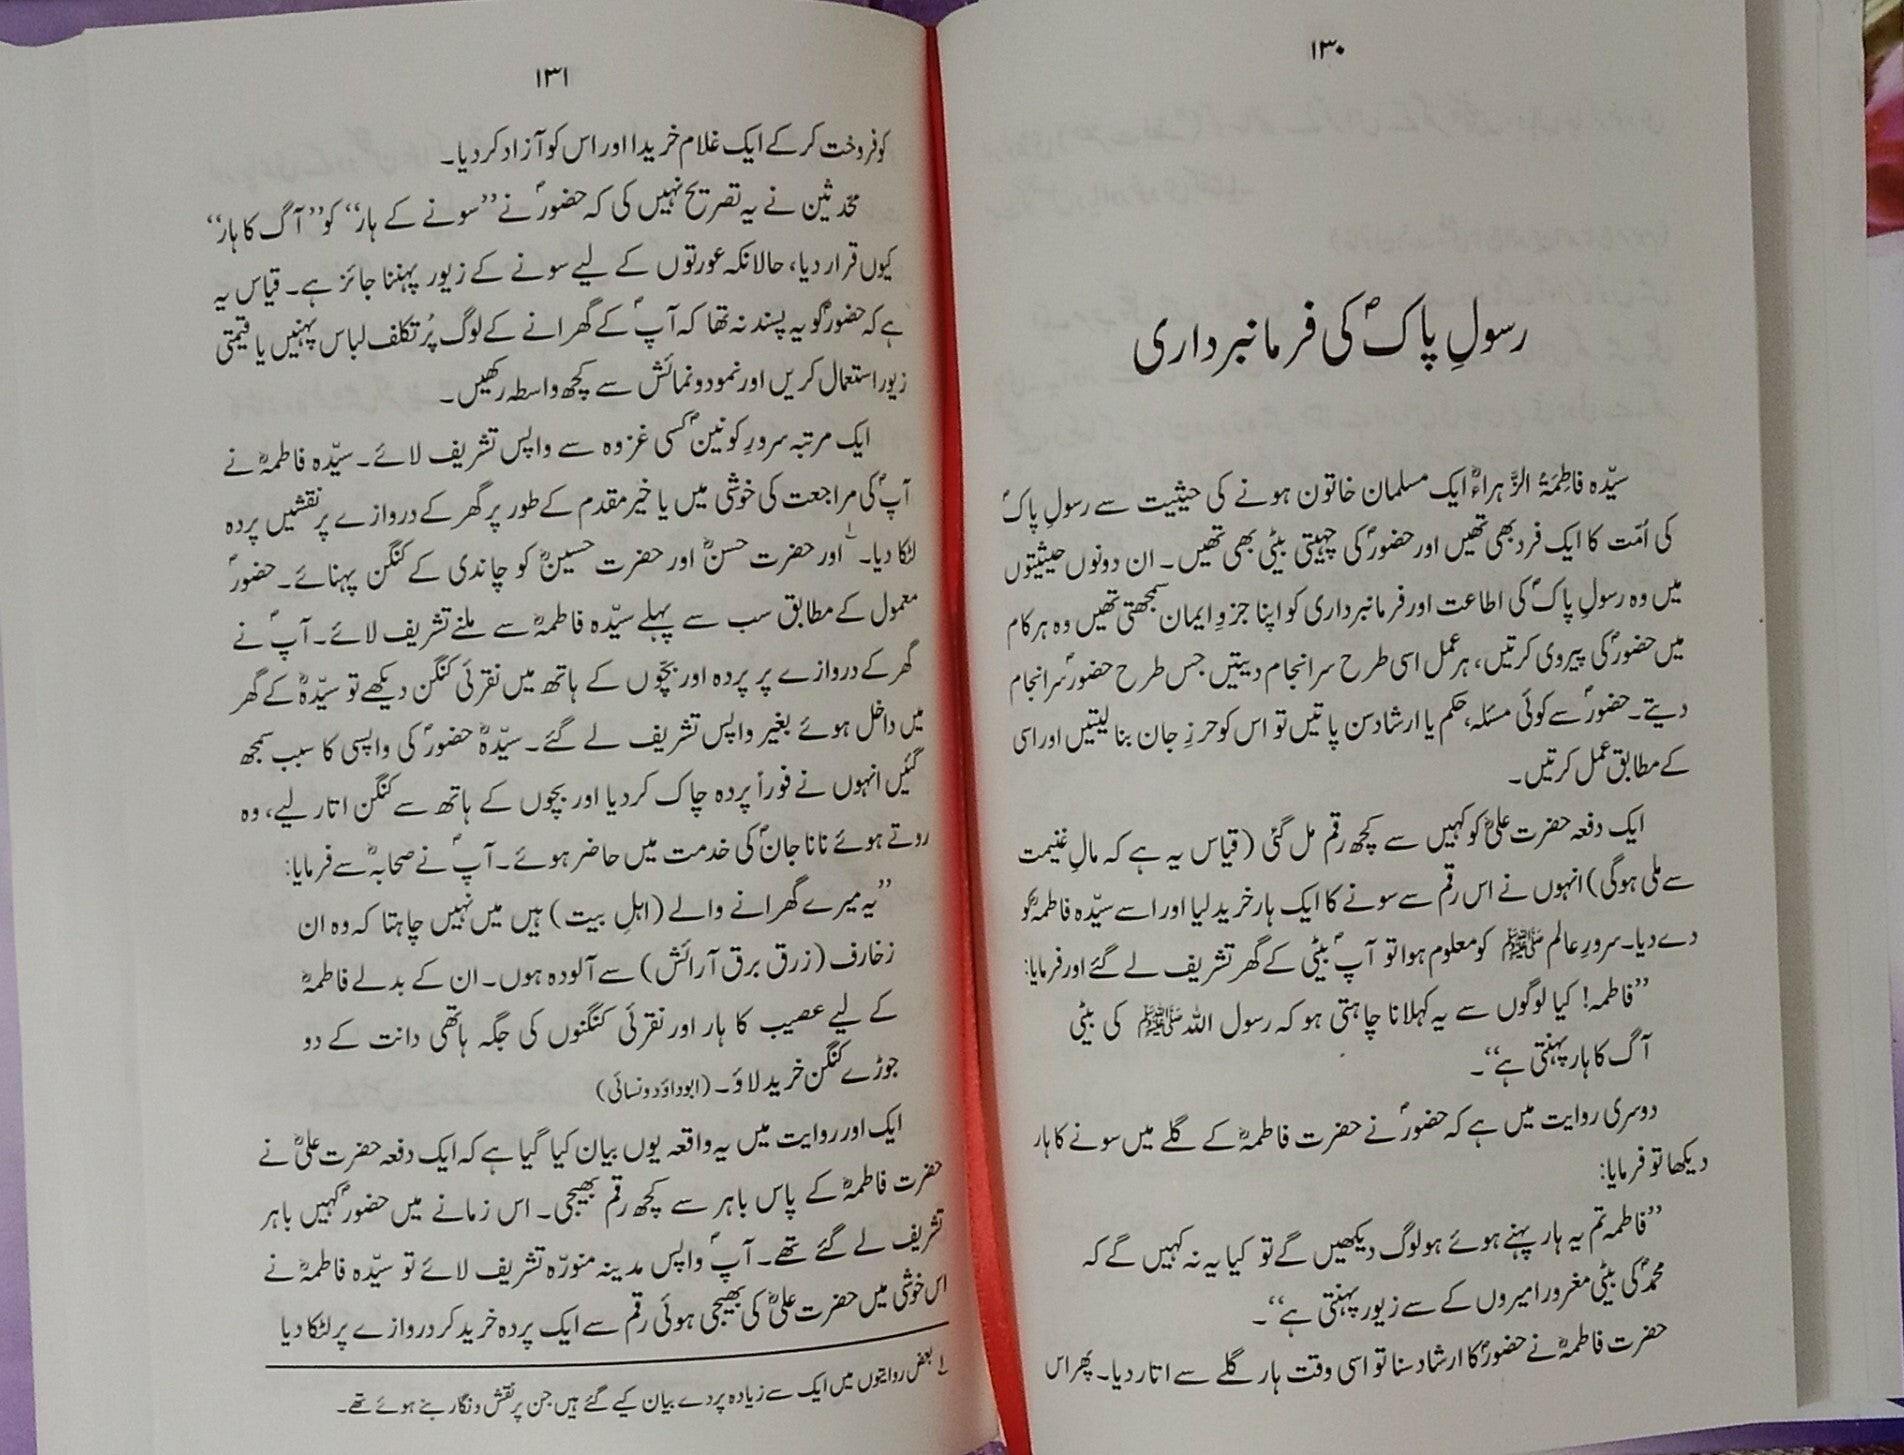 ۱۳۰
رسولِ پاکؐ کی فرمانبرداری
سیّدہ فاطِمَۃُ الزَّہراءؓ ایک مسلمان خاتون ہونے کی حیثیت سے رسولِ پاکؐ
کی اُمّت کا ایک فرد بھی تھیں اور حضورؐ کی چہیتی بیٹی بھی تھیں۔ ان دونوں حیثیتوں
میں وہ رسولِ پاکؐ کی اطاعت اور فرمانبرداری کو اپنا جزوِ ایمان سمجھتی تھیں وہ ہر کام
میں حضورؐ کی پیروی کرتیں، ہر عمل اسی طرح سرانجام دیتیں جس طرح حضورؐ سرانجام
دیتے۔ حضورؐ سے کوئی مسئلہ، حکم یا ارشاد سن پاتیں تو اس کو حرزِ جان بنا لیتیں اور اسی
کے مطابق عمل کرتیں۔
ایک دفعہ حضرت علیؓ کو کہیں سے کچھ رقم مل گئی (قیاس یہ ہے کہ مالِ غنیمت
سے ملی ہوگی) انہوں نے اس رقم سے سونے کا ایک ہار خرید لیا اور اسے سیّدہ فاطمہؓ کو
دے دیا۔ سرورِ عالم ﷺ کو معلوم ہوا تو آپؐ بیٹی کے گھر تشریف لے گئے اور فرمایا:
’’فاطمہ! کیا لوگوں سے یہ کہلانا چاہتی ہو کہ رسول اللہ ﷺ کی بیٹی
آگ کا ہار پہنتی ہے‘‘۔
دوسری روایت میں ہے کہ حضورؐ نے حضرت فاطمہؓ کے گلے میں سونے کا ہار
دیکھا تو فرمایا:
’’فاطمہ تم یہ ہار پہنے ہوئے ہو لوگ دیکھیں گے تو کیا یہ نہ کہیں گے کہ
محمدؐ کی بیٹی مغرور امیروں کے سے زیور پہنتی ہے‘‘۔
حضرت فاطمہؓ نے حضورؐ کا ارشاد سنا تو اسی وقت ہار گلے سے اتار دیا۔ پھر اس
۱۳۱
کو فروخت کر کے ایک غلام خریدا اور اس کو آزاد کر دیا۔
محدثین نے یہ تصریح نہیں کی کہ حضورؐ نے ’’سونے کے ہار‘‘ کو ’’آگ کا ہار‘‘
کیوں قرار دیا، حالانکہ عورتوں کے لیے سونے کے زیور پہننا جائز ہے۔ قیاس یہ
ہے کہ حضورؐ کو یہ پسند نہ تھا کہ آپؐ کے گھرانے کے لوگ پُر تکلف لباس پہنیں یا قیمتی
زیور استعمال کریں اور نمود و نمائش سے کچھ واسطہ رکھیں۔
ایک مرتبہ سرورِ کونینؐ کسی غزوہ سے واپس تشریف لائے۔ سیّدہ فاطمہؓ نے
آپؐ کی مراجعت کی خوشی میں یا خیر مقدم کے طور پر گھر کے دروازے پر نقشیں پردہ
لٹکا دیا۔ ۱؎ اور حضرت حسنؓ اور حضرت حسینؓ کو چاندی کے کنگن پہنائے۔ حضورؐ
معمول کے مطابق سب سے پہلے سیّدہ فاطمہؓ سے ملنے تشریف لائے۔ آپؐ نے
گھر کے دروازے پر پردہ اور بچّوں کے ہاتھ میں نقرئی کنگن دیکھے تو سیّدہؓ کے گھر
میں داخل ہوئے بغیر واپس تشریف لے گئے۔ سیّدہؓ حضورؐ کی واپسی کا سبب سمجھ
گئیں انہوں نے فوراً پردہ چاک کر دیا اور بچوں کے ہاتھ سے کنگن اتار لیے، وہ
روتے ہوئے نانا جانؐ کی خدمت میں حاضر ہوئے۔ آپؐ نے صحابہؓ سے فرمایا:
’’یہ میرے گھرانے والے (اہلِ بیت) ہیں میں نہیں چاہتا کہ وہ ان
زخارف (زرق برق آرائش) سے آلودہ ہوں۔ ان کے بدلے فاطمہؓ
کے لیے عصیب کا ہار اور نقرئی کنگنوں کی جگہ ہاتھی دانت کے دو
جوڑے کنگن خرید لاؤ۔ (ابوداؤد و نسائی)
ایک اور روایت میں یہ واقعہ یوں بیان کیا گیا ہے کہ ایک دفعہ حضرت علیؓ نے
حضرت فاطمہؓ کے پاس باہر سے کچھ رقم بھیجی۔ اس زمانے میں حضورؐ کہیں باہر
تشریف لے گئے تھے۔ آپؐ واپس مدینہ منورّہ تشریف لائے تو سیّدہ فاطمہؓ نے
اس خوشی میں حضرت علیؓ کی بھیجی ہوئی رقم سے ایک پردہ خرید کر دروازے پر لٹکا دیا
۱؎ بعض روایتوں میں ایک سے زیادہ پردے بیان کیے گئے ہیں جن پر نقش و نگار بنے ہوئے تھے۔